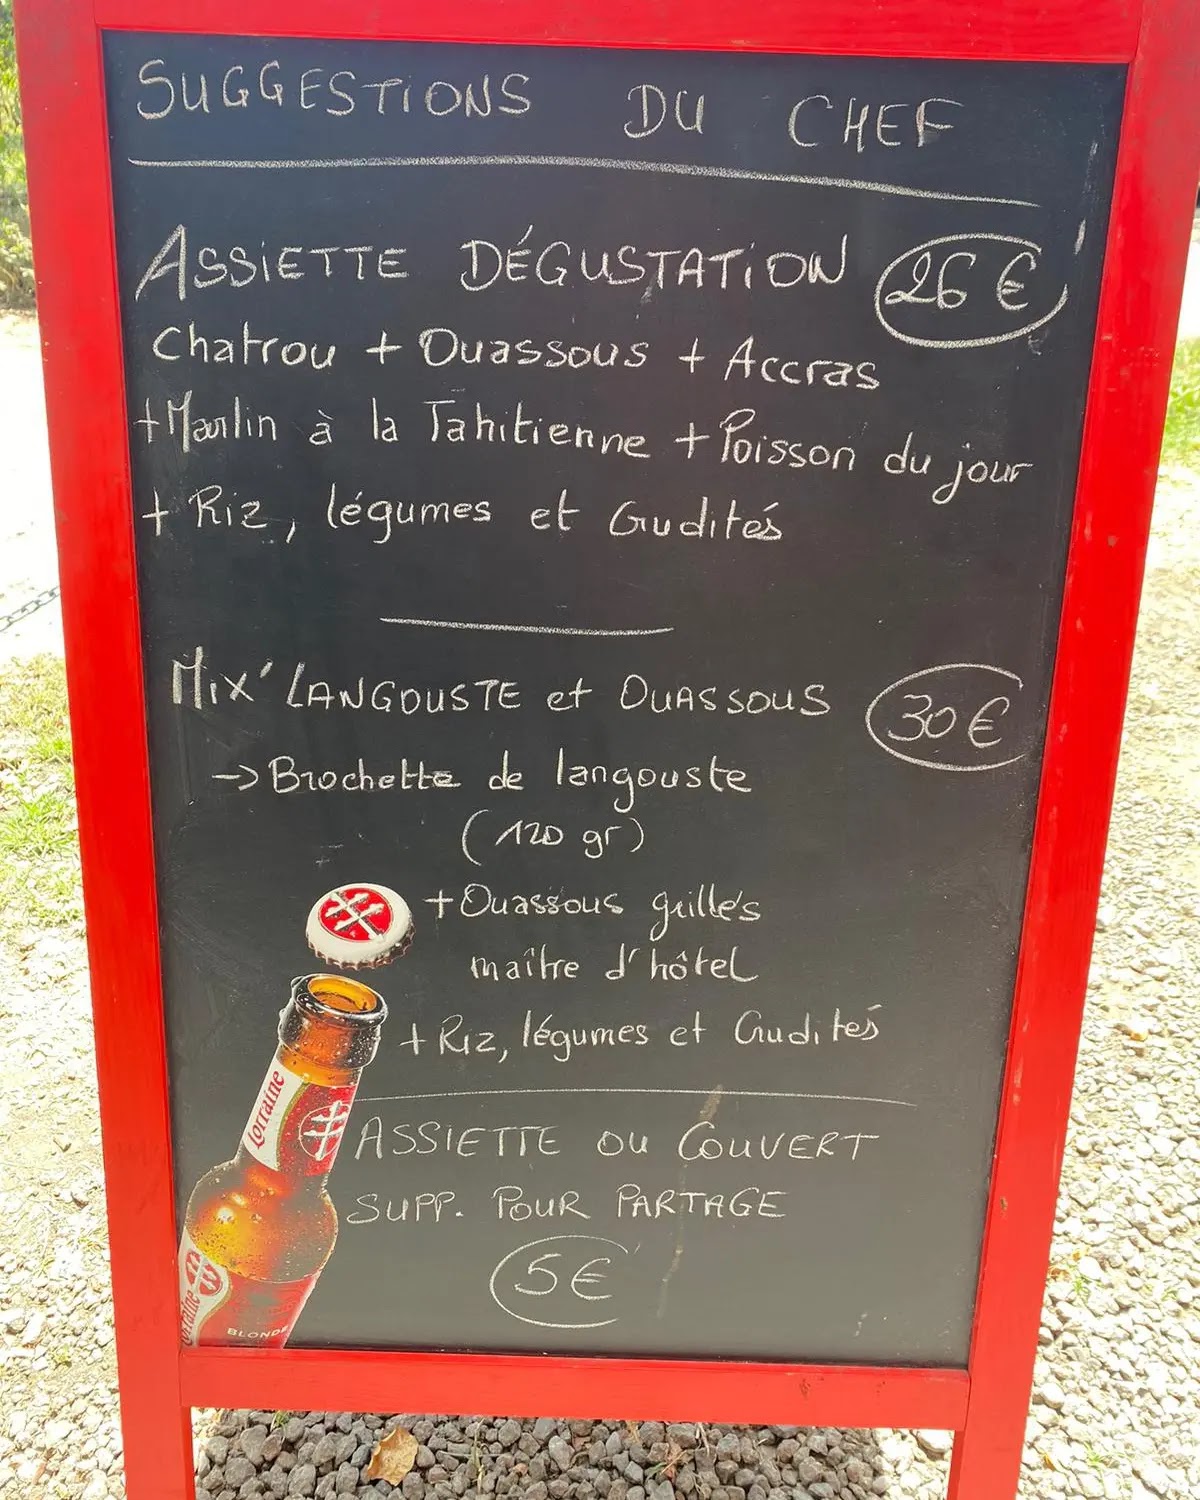 SUGGESTIONS DU CHEF
ASSIETTE DÉGUSTATION 26 €
Chatrou + Ouassous + Accras
+ Marlin à la Tahitienne + Poisson du jour
+ Riz, légumes et Crudités
MIX' LANGOUSTE et OUASSOUS 30 €
-> Brochette de langouste
(120 gr)
+ Ouassous grillés
maître d'hôtel
+ Riz, légumes et Crudités
Lorraine
ASSIETTE OU COUVERT
SUPP. POUR PARTAGE
5 €
Lorraine
BLONDE